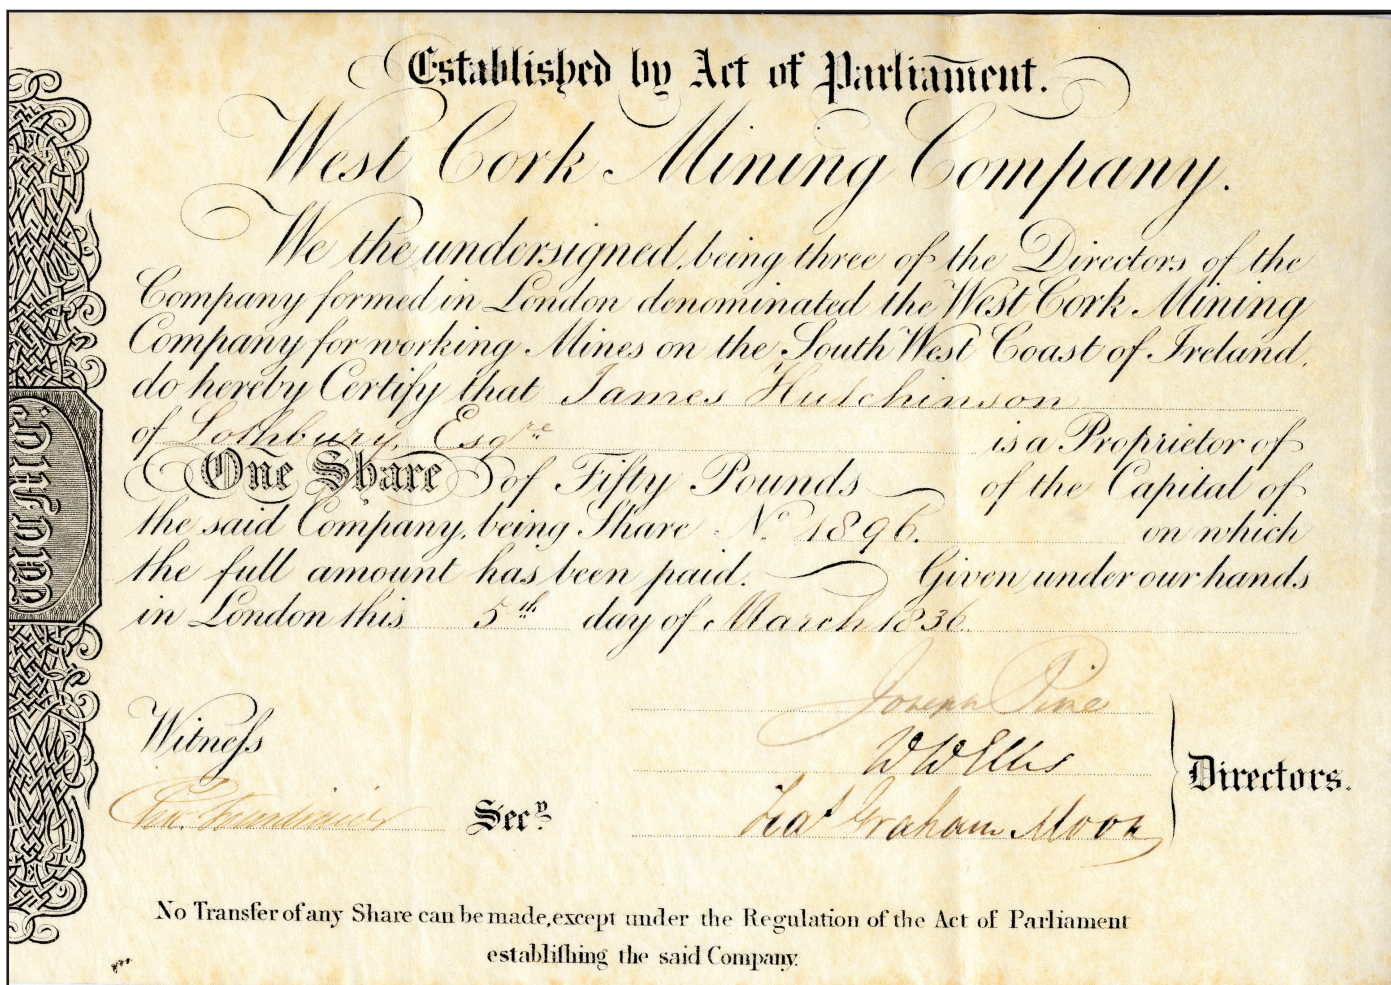 Established by Act of Parliament.
West Cork Mining Company.
We the undersigned, being three of the Directors of the
Company formed in London denominated the West Cork Mining
Company for working Mines on the South West Coast of Ireland,
do hereby Certify that James Hutchinson
of Lothbury, Esqre is a Proprietor of
One Share of Fifty Pounds of the Capital of
the said Company, being Share No. 1896. on which
the full amount has been paid. Given under our hands
in London this 5th day of March 1836.
Joseph Pine
Witneſs
W W Ellis
Directors.
Secy.
Graham Moon
No Transfer of any Share can be made, except under the Regulation of the Act of Parliament
establiſhing the said Company.